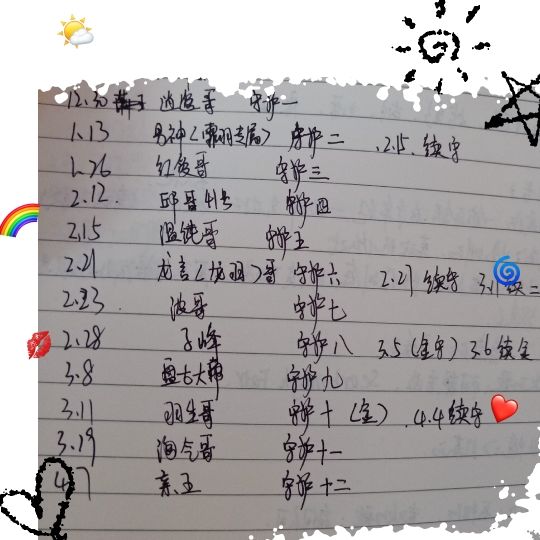 12.30 波波哥 守护一
1.13 男神(霏羽专属) 守护二 .2.15.续守
1.26 红俊哥 守护三
2.12. 邱哥 守护四
2.15 温钝哥 守护五
2.21 龙言(龙羽)哥 守护六 2.27 续守 3.1续二
2.23. 波哥 守护七
2.28 子峰 守护八 3.5(金守) 3.6续金
3.8 盘古大 守护九
3.11 羽生哥 守护十(金) .4.4续守
3.19 淘气哥 守护十一
4.7 亲王 守护十二